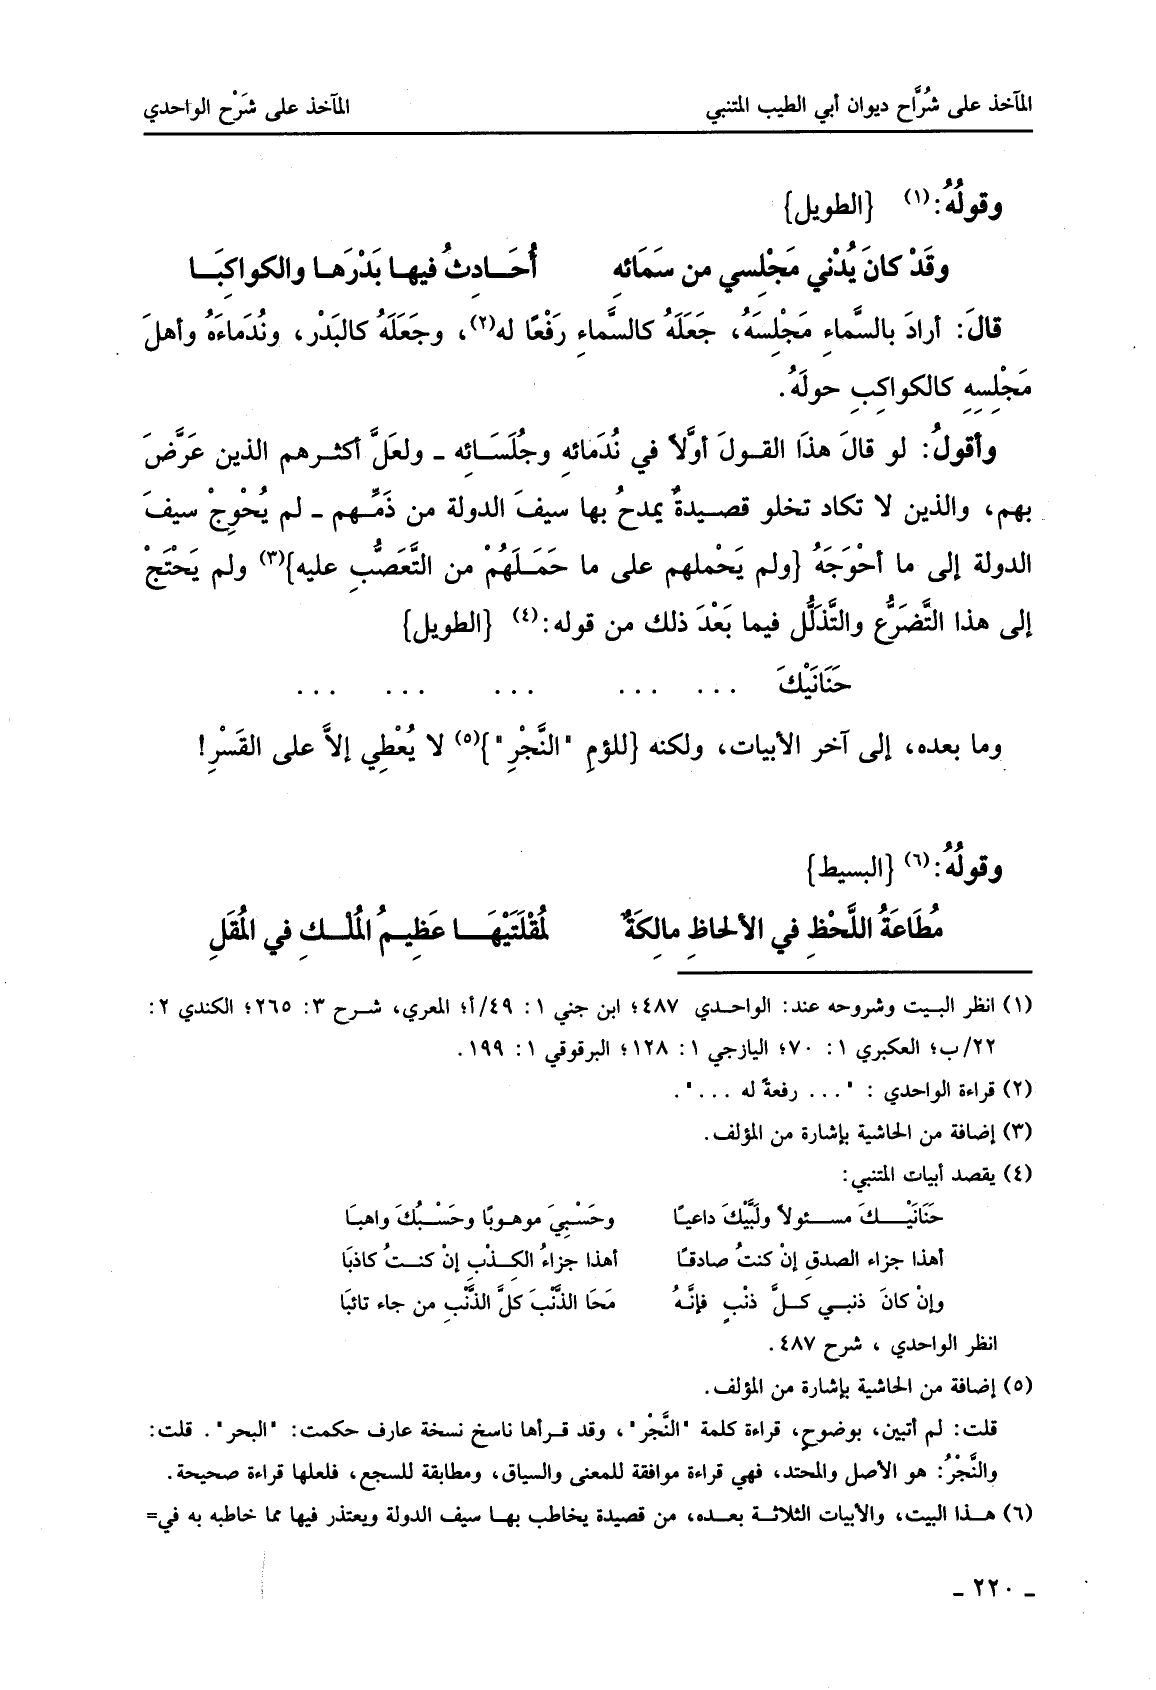 المآخذ على شُرَّاح ديوان أبي الطيب المتنبي المآخذ على شَرْح الواحدي
وقولُهُ:(١) {الطويل}
وقَدْ كانَ يُدْني مَجْلِسي من سَمَائِهِ أُحَـادِثُ فيهـا بَدْرَهـا والكواكِبَـا
قالَ: أرادَ بالسَّماءِ مَجْلِسَهُ، جَعَلَهُ كالسَّماءِ رَفْعًا له(٢)، وجَعَلَهُ كالبَدْر، ونُدَماءَهُ وأهلَ
مَجْلِسِهِ كالكواكِبِ حولَهُ.
وأقولُ: لو قالَ هذَا القـولَ أوَّلاً في نُدَمائِهِ وجُلَسَـائِه ـ ولعَلَّ أكثـرهم الذين عَرَّضَ
بهم، والذين لا تكاد تخلو قصـيدةٌ يمدحُ بها سيفَ الدولة من ذَمِّـهم ـ لم يُحْوِجْ سيفَ
الدولة إلى ما أحْوَجَهُ {ولم يَحْملهم على ما حَمَـلَهُمْ من التَّعَصُّبِ عليه}(٣) ولم يَحْتَجْ
إلى هذا التَّضَرُّع والتَّذَلُّل فيما بَعْدَ ذلك من قوله:(٤) {الطويل}
حَنَانَيْكَ ... ... ... ... ...
وما بعده، إلى آخر الأبيات، ولكنه {للؤمِ "النَّجْرِ"}(٥) لا يُعْطِي إلاَّ على القَسْرِ!
وقولُهُ:(٦) {البسيط}
مُطَاعَةُ اللَّحْظِ في الألحاظِ مالِكَةٌ لمُقْلَتَيْهَـــا عَظِيـمُ المُلْـكِ في المُقَلِ
(١) انظر البـيت وشروحه عند: الواحـدي ٤٨٧؛ ابن جني ١: ٤٩/أ؛ المعري، شـرح ٣: ٢٦٥؛ الكندي ٢:
٢٢/ب؛ العكبري ١: ٧٠؛ اليازجي ١: ١٢٨؛ البرقوقي ١: ١٩٩.
(٢) قراءة الواحدي : "... رفعةً له ...".
(٣) إضافة من الحاشية بإشارة من المؤلف.
(٤) يقصد أبيات المتنبي:
حَنَانَيْـــكَ مســـئولاً ولَبَّيْكَ داعيًـا وحَسْبِيَ موهـوبًا وحَسْـبُكَ واهبَـا
أهذا جزاء الصدقِ إنْ كنتُ صادقًـا أهذا جزاءُ الكـذْبِ إنْ كنـتُ كاذبَا
وإنْ كانَ ذنبـي كـلَّ ذنْبٍ فإنَّـهُ مَحَا الذَّنْبَ كلَّ الذَّنْبِ من جاء تائبَا
انظر الواحدي ، شرح ٤٨٧.
(٥) إضافة من الحاشية بإشارة من المؤلف.
قلت: لم أتبين، بوضوحٍ، قراءة كلمة "النَّجْر"، وقد قـرأها ناسخ نسخة عارف حكمت: "البحر". قلت:
والنَّجْرُ: هو الأصل والمحتد، فهي قراءة موافقة للمعنى والسياق، ومطابقة للسجع، فلعلها قراءة صحيحة.
(٦) هـذا البيت، والأبيات الثلاثـة بعـده، من قصيدة يخاطب بهـا سيف الدولة ويعتذر فيها مما خاطبه به في=
ـ ٢٢٠ ـ